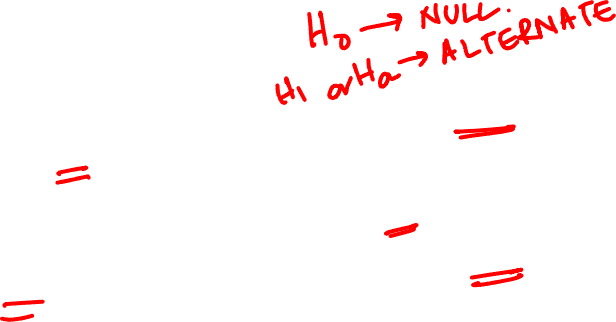 H₀ → NULL.
H₁ or Hₐ → ALTERNATE